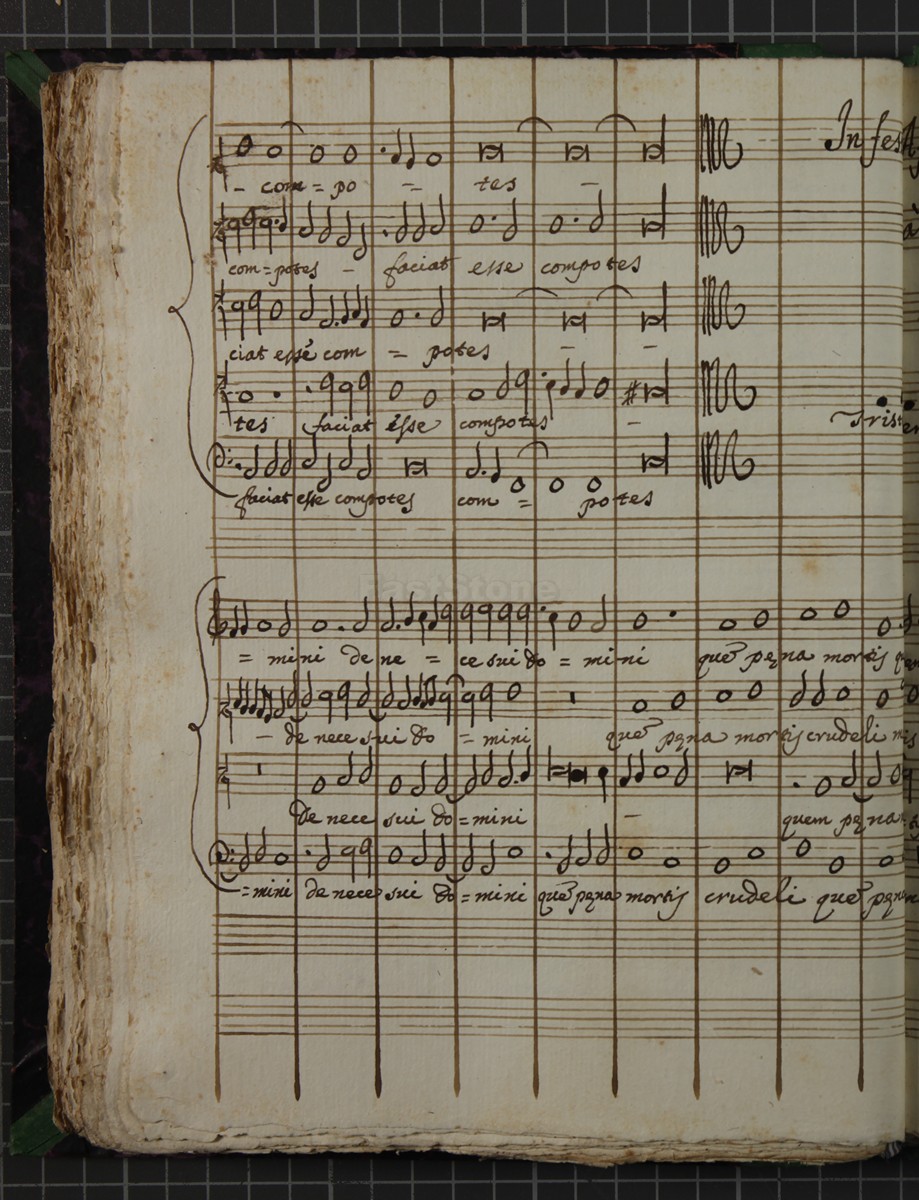 In fes
- com = po - tes -
com = potes - faciat esse compotes
ciat esse com = potes - -
tes faciat esse compotes -
Trist
faciat esse compotes com = potes
FastStone
= mini de ne = ce sui do = mini quē pęna mortis
- de nece sui do = mini quē pęna mortis crudeli
de nece sui do = mini - quem pęna
= mini de nece sui do = mini quē pęna mortis crudeli quē